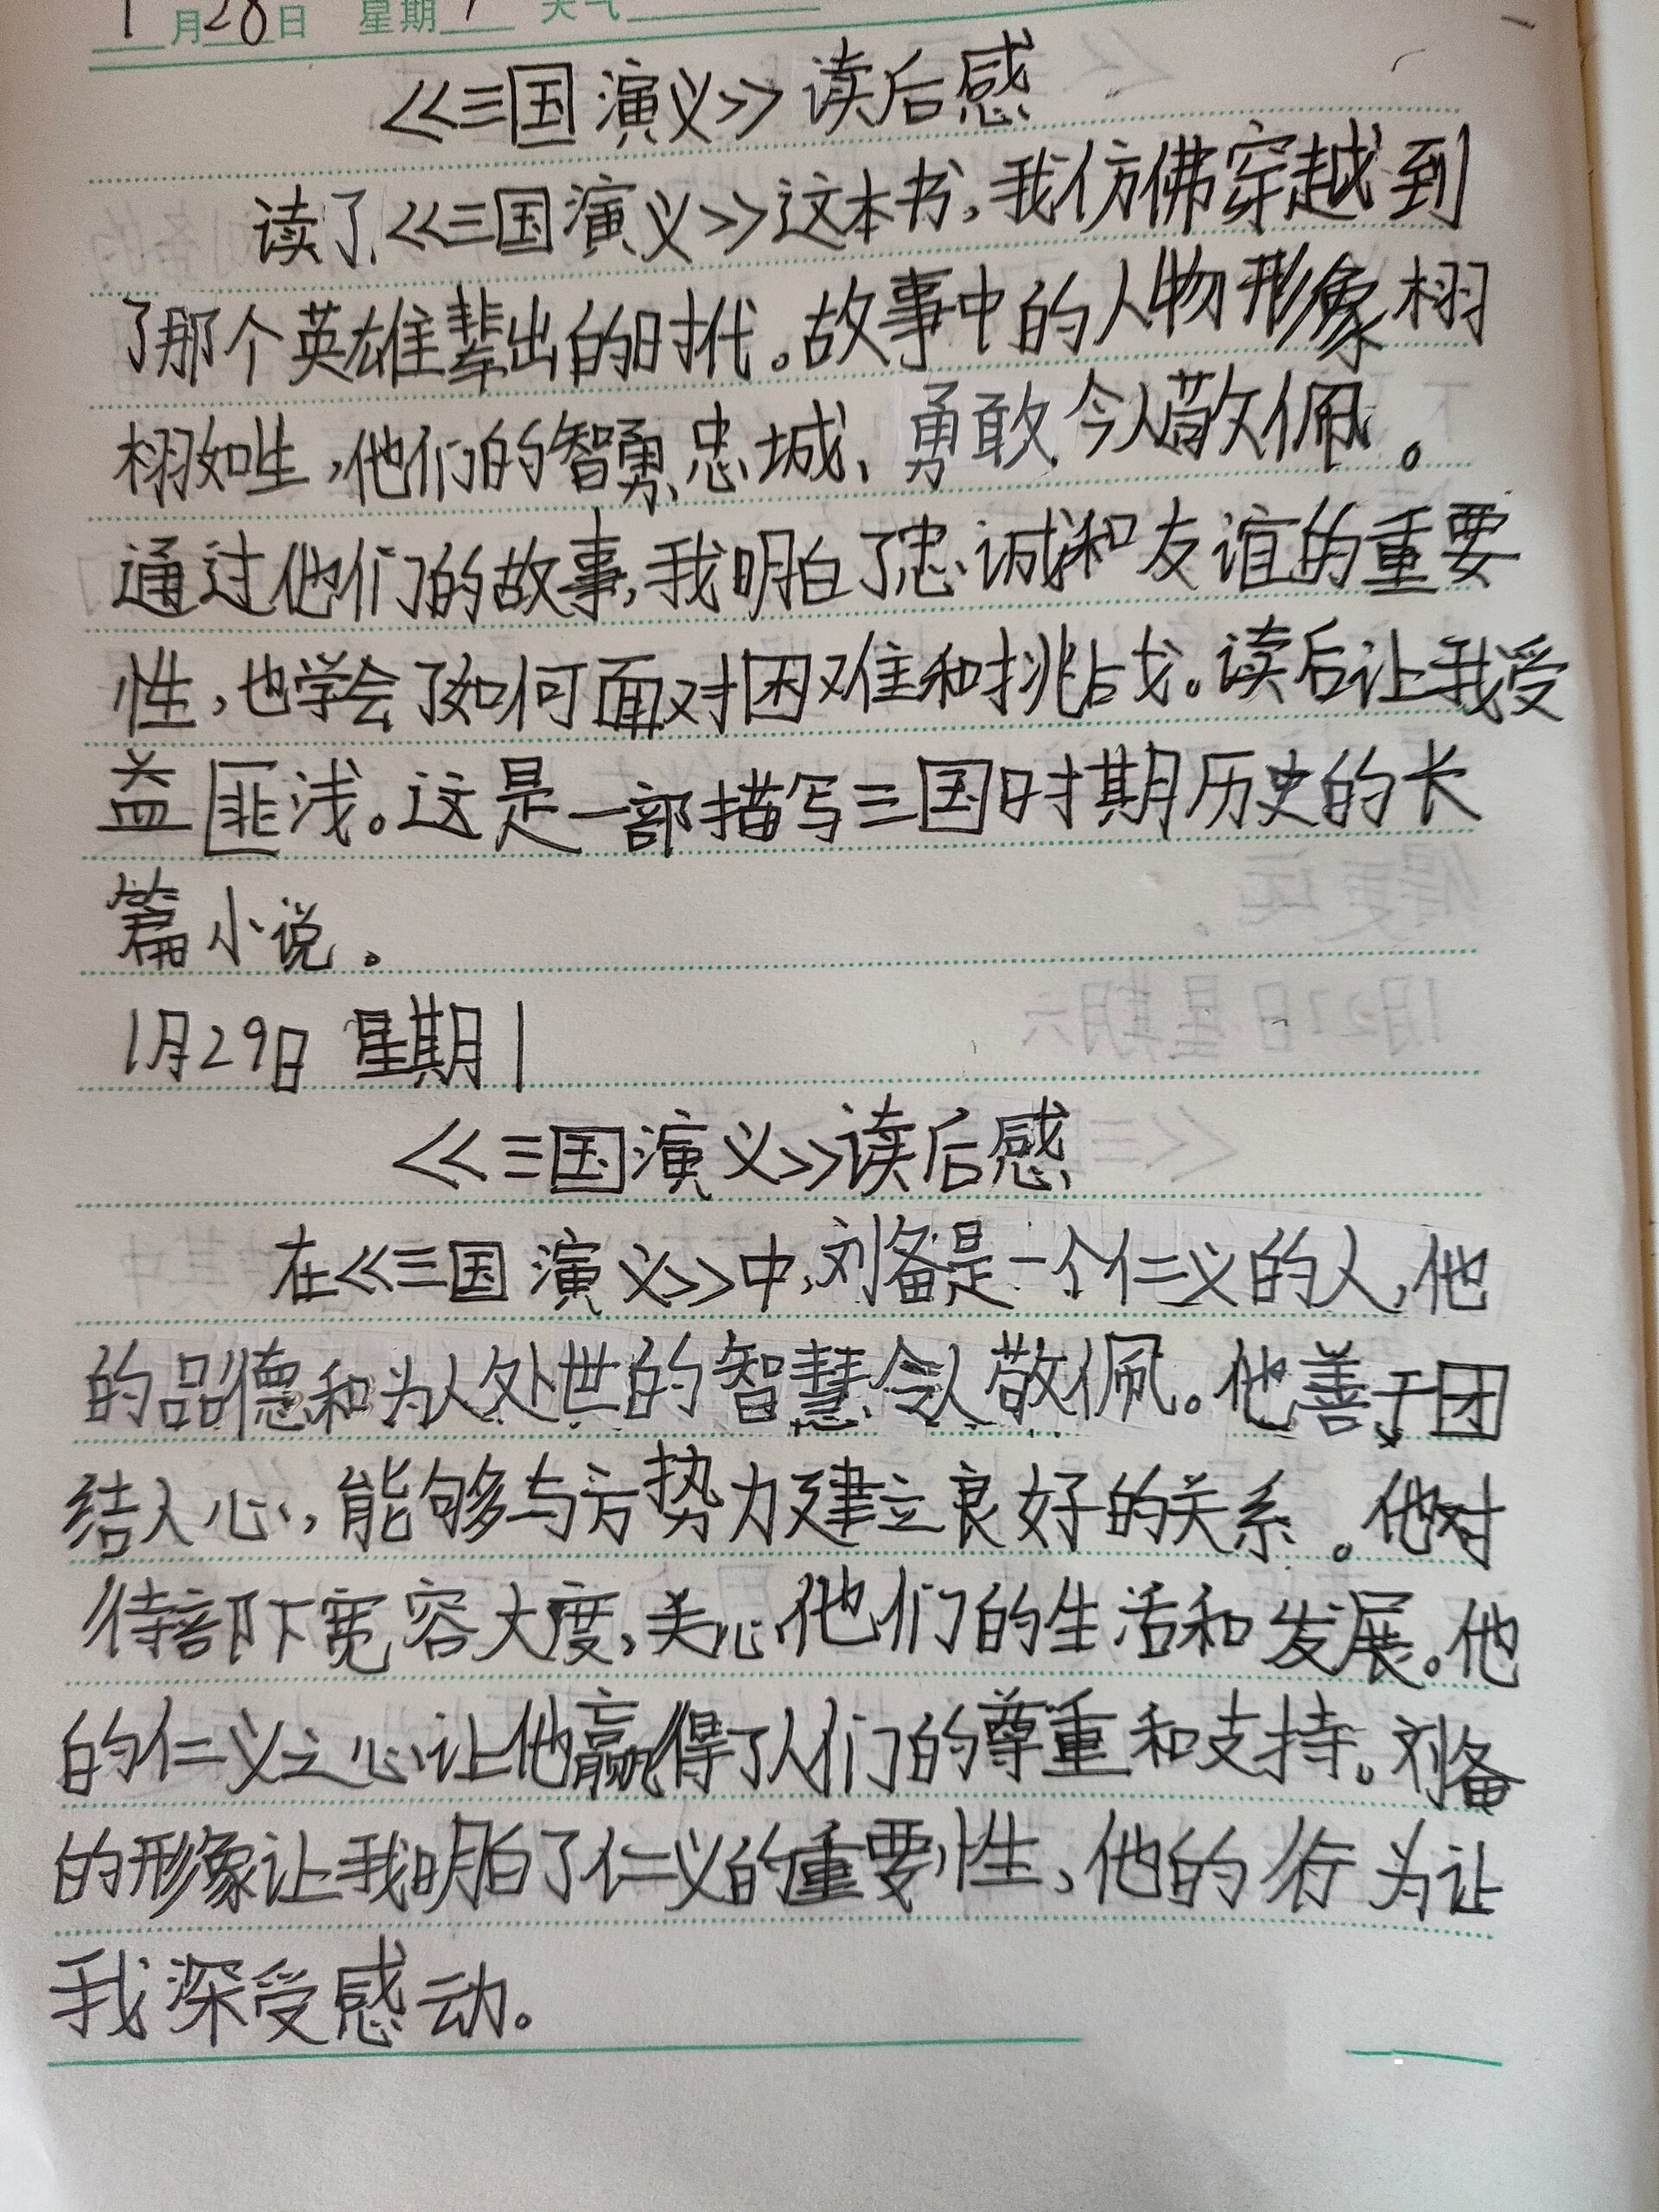 1月28日 星期 天气
《三国演义》读后感
读了《三国演义》这本书，我仿佛穿越到
了那个英雄辈出的时代。故事中的人物形象栩
栩如生，他们的智勇、忠城、勇敢，今人敬佩。
通过他们的故事，我明白了忠诚和友谊的重要
性，也学会了如何面对困难和挑战。读后让我受
益匪浅。这是一部描写三国时期历史的长
篇小说。
1月29日 星期1
《三国演义》读后感
在《三国演义》中，刘备是一个仁义的人，他
的品德和为人处世的智慧令人敬佩。他善于团
结人心，能够与方势力建立良好的关系。他对
待部下宽容大度，关心他们的生活和发展。他
的仁义之心让他赢得了人们的尊重和支持。刘备
的形象让我明白了仁义的重要性，他的行为让
我深受感动。